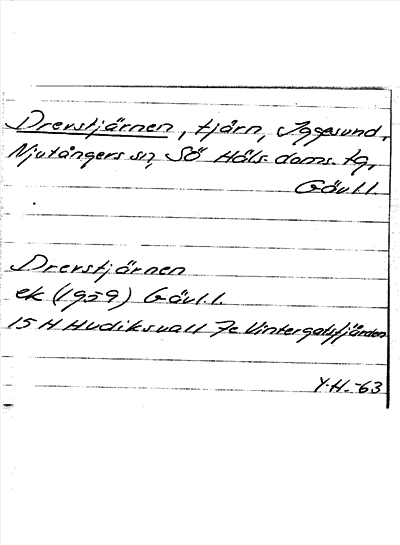 Drevstjärnen, tjärn, Iggesund,
Njutångers sn, Sö Häls. doms. tg,
Gävl.l.
Drevstjärnen
ek (1959) Gävl.l.
15 H Hudiksvall 7e Vintergatsfjärden
Y.H.-63